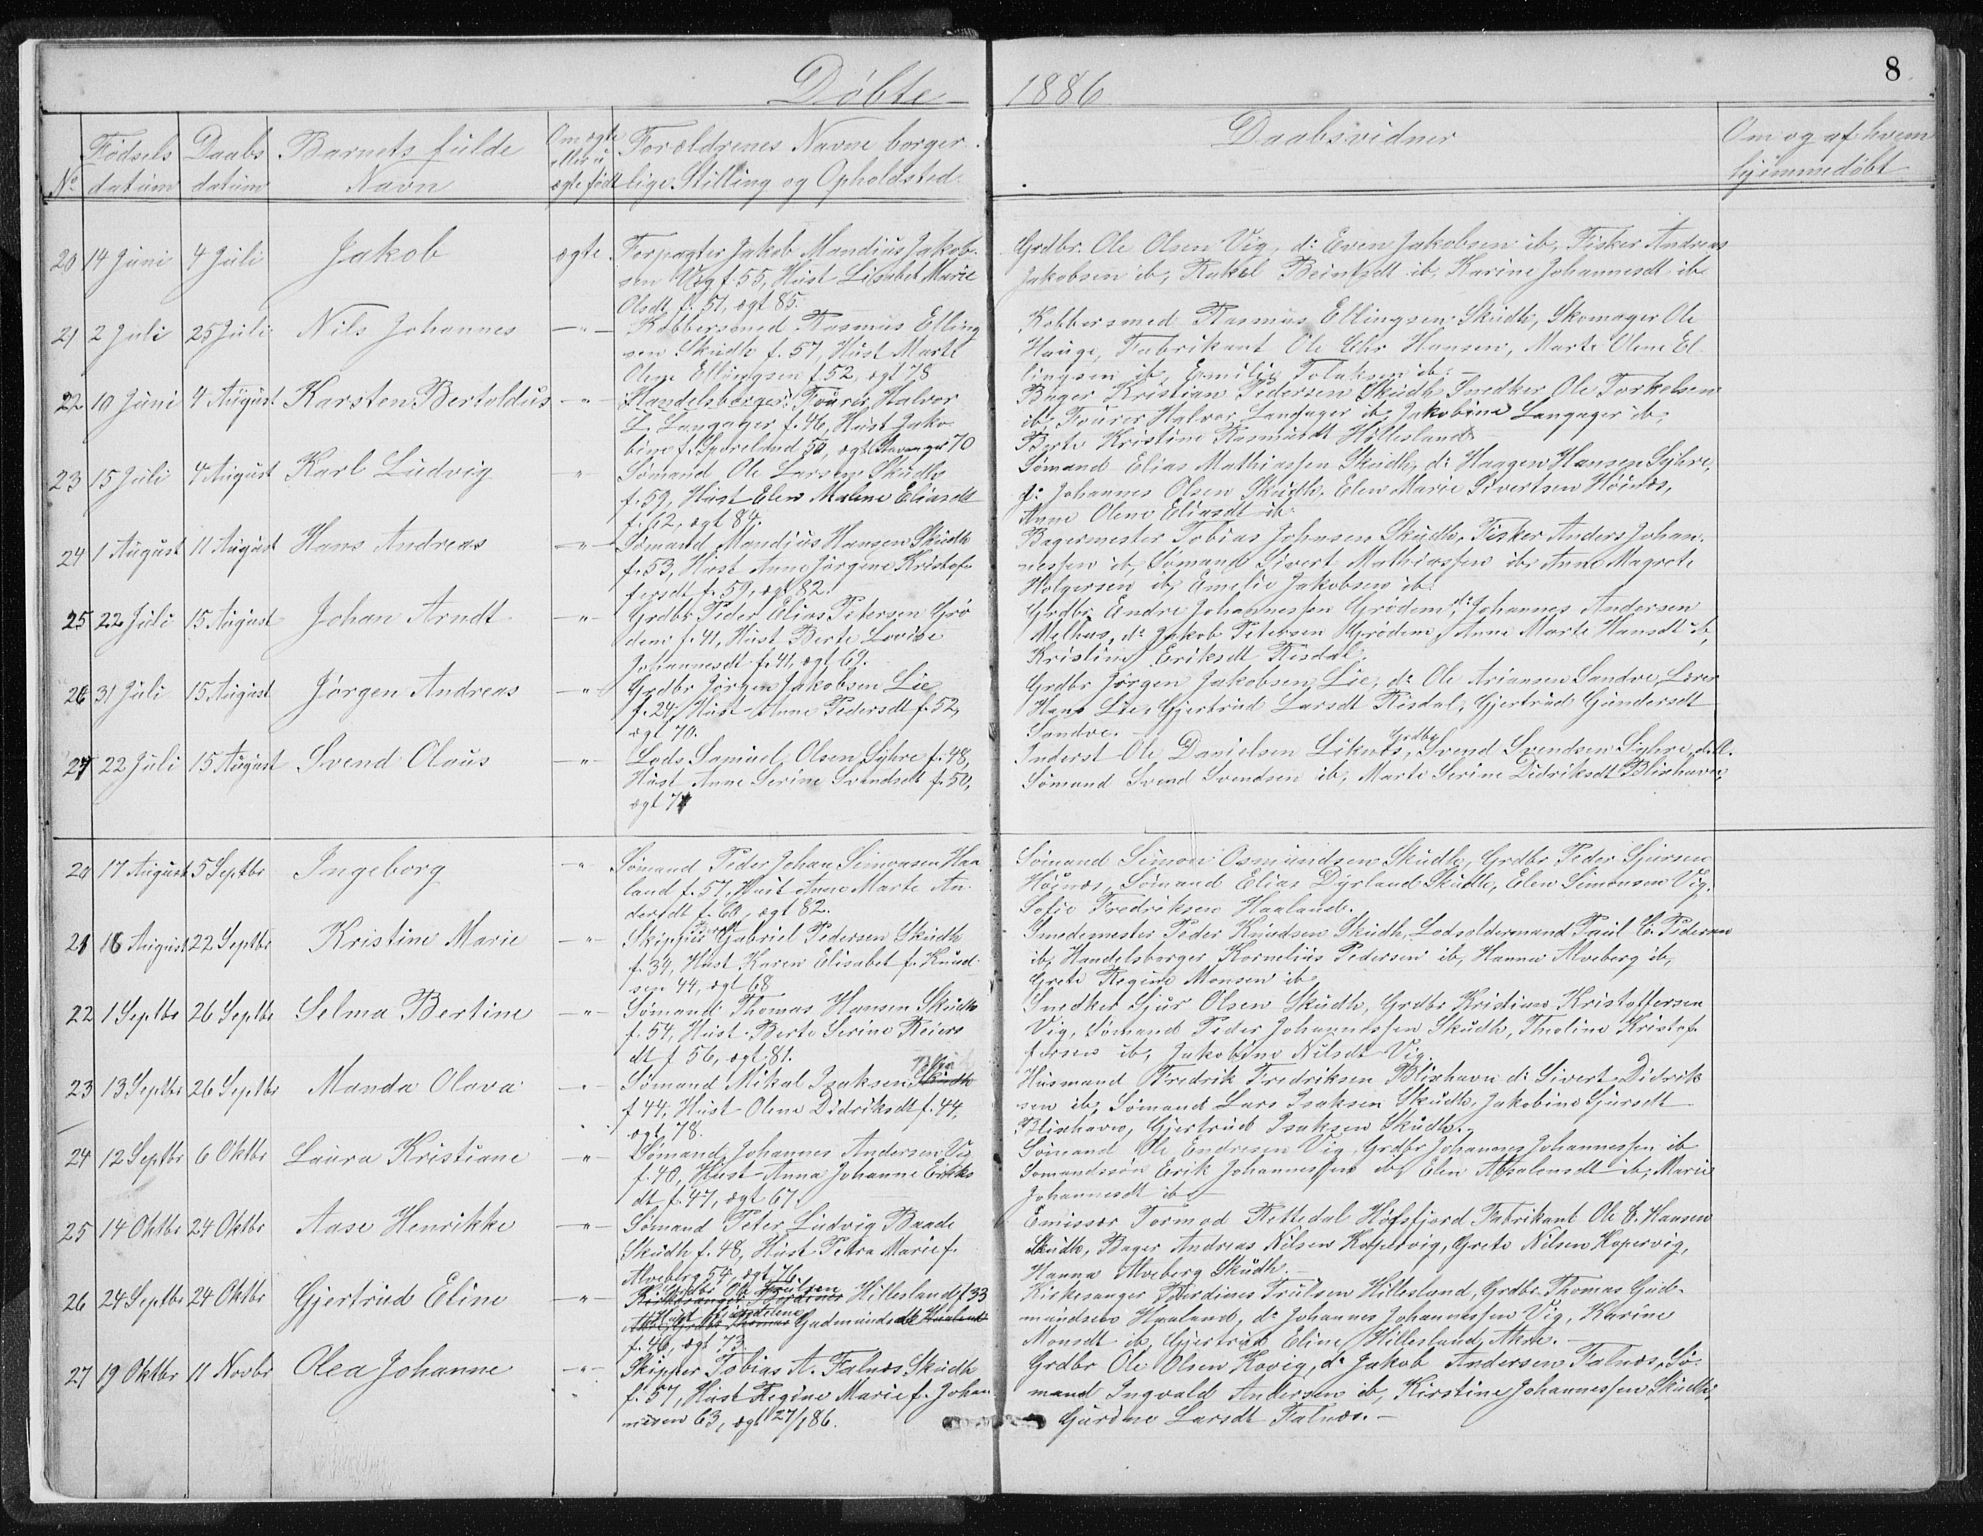 8
Døbte 1886
No
Fødsels datum
Daabs datum
Barnets fulde Navn
Om ægte eller uægte født
Forældrenes Navne borgerlige Stilling og Opholdsted
Daabsvidner
Om og af hvem hjemmedøbt
20 14 Juni 4 Juli Jakob ægte Forpagter Jakob Mandius Jakob-
sen Vig f. 55, Hust Lisabet Marie
Olsdt f. 51, ægt 85.
Grdbr. Ole Olsen Vig, do Even Jakobsen ib, Fisker Andreas
Jakobsen ib, Rakel Beintsdt ib, Karine Johannesdt ib
21 2 Juli 25 Juli Nils Johannes —"— Kobbersmed Rasmus Elling
sen Skudh f. 57, Hust Marte
Olene Ellingsen f. 52, ægt 78
Kobbersmed Rasmus Ellingsen Skudh, Skomager Ole
Hauge, Fabrikant Ole Chr Hansen, Marte Olene El-
lingsen ib, Emilie Tolaksen ib.
22 10 Juni 4 August Karsten Bertoldus —"— Handelsborger Tourer Halvor
L. Langager f. 46, Hust Jako-
bine f. Spareland 50, ægt Stavanger 70
Bager Kristian Pedersen Skudh, Snedker Ole Torkelsen
ib, Tourer Halvor Langager ib, Jakobine Langager ib,
Berte Kristine Rasmusdt Hillesland
23 15 Juli 4 August Karl Ludvig " Sømand Ole Larsen Skudh
f. 59, Hust Elen Malene Eliasdt
f. 62, ægt 84.
Sømand Elias Mathiassen Skudh, do Haagen Hansen Syhre,
do Johannes Olsen Skudh, Elen Marie Sivertsen Høinæs,
Anne Olene Eliasdt ib.
24 1 August 11 August Hans Andreas —"— Sømand Mandius Hansen Skudh
f. 53, Hust Anne Jørgine Kristof-
fersdt f. 59, ægt 82.
Bagermester Tobias Johnsen Skudh, Fisker Anders Johan-
nessen ib, Sømand Sivert Mathiassen ib, Anne Magrete
Holgersen ib, Emelie Jakobsen ib.
25 22 Juli 15 August Johan Arndt —"— Grdbr Peder Elias Petersen Grø
dem f. 41, Hust Berte Lovise
Johannesdt f. 41, ægt 69.
Grdbr. Endre Johannessen Grødem, do Johannes Andersen
Melhus, do Jakob Petersen Grødem, Anne Marte Hansdt ib,
Kristine Eriksdt Risdal.
26 31 Juli 15 August Jørgen Andreas —"— Grdbr Jørgen Jakobsen Lie
f. 24, Hust Anne Pedersdt f. 52,
ægt 70.
Grdbr Jørgen Jakobsen Lie, do Ole Ariansen Sandve, Lærer
Hans Lie, Gjertrud Larsdt Risdal, Gjertrud Gundersdt
Sandve.
27 22 Juli 15 August Svend Olaus —"— Lods Samuel Olsen Syhre f. 48,
Hust Anne Serine Svendsdt f. 50,
ægt 71
Inderst Ole Danielsen Liknæs, Grdbr Svend Svendsen Syhre, d.A.
Sømand Svend Svendsen ib, Marte Serine Didriksdt Blixhavn,
20 17 August 5 Septbr Ingeborg —"— Sømand Peder Johan Simonsen Haa
land f. 57, Hust Anne Marte An-
dersdt f. 60, ægt 82.
Sømand Simon Osmundsen Skudh, Grdbr Peder Sjursen
Høinæs, Sømand Elias Dyrland Skudh, Elen Simonsen Vig.
Sofie Fredriksen Haaland.
21 16 August 22 Septbr Kristine Marie —"— Gabriel Pedersen Skudh
f. 34, Hust Karen Elisabet f. Knud
sen 44, ægt 68
Smedemester Peder Knudsen Skudh, Lodsoldermand Paul C. Pedersen
ib, Handelsborger Kornelius Pedersen ib, Hanna Alveberg ib,
Grete Regine Monsen ib.
22 1 Septbr 26 Septbr Selma Bertine —"— Sømand Thomas Hansen Skudh
f. 54, Hust Berte Serine Reiers
dt f. 56, ægt 81.
Snedker Sjur Olsen Skudh, Grdbr Kristian Kristoffersen
Vig, Sømand Peder Johannessen Skudh, Tholine Kristof
fersen ib, Jakobine Nilsdt Vig.
23 13 Septbr 26 Septbr Manda Olava —"— Sømand Mikal Isaksen Skudh
f. 44, Hust Olene Didriksdt f. 44
ægt 78.
Husmand Fredrik Fredriksen Blixhavn do Sivert Didrik
sen ib, Sømand Lars Isaksen Skudh, Jakobine Sjursdt
Blixhavn, Gjertrud Isaksen Skudh.
24 12 Septbr 6 Oktbr Laura Kristiane —"— Sømand Johannes Andersen Vig
f. 40, Hust Anna Johanne Eriks
dt f. 47, ægt 67.
Sømand Ole Endresen Vig, Grdbr Johannes Johannessen ib
Sømandssøn Erik Johannessen ib, Elen Absalonsdt ib, Marie
Johannesdt ib
25 14 Oktbr 24 Oktbr Aase Henrikke —"— Sømand Peter Ludvig Baade
Skudh f. 48, Hust Petra Marie f.
Alveberg 54, ægt 76.
Emissær Tormod Rettedal Høfsfjord Fabrikant Ole C. Hansen
Skudh, Bager Andreas Nilsen Kopervig, Grete Nilsen Kopervig,
Hanna Alveberg Skudh.
26 24 Septbr 24 Oktbr Gjertrud Eline —"— Grdbr Ole Trulsen
Hillesland f 33
Gudmundsdt
f. 46, ægt 73
Kirkesanger Bordinus Trulsen Hillesland, Grdbr Thomas Gud-
mundsen Haaland, do Johannes Johannessen Vig, Karine
Monsdt ib, Gjertrud Eline Hillesland, Akre.
27 19 Oktbr 11 Novbr Olea Johanne —"— Skipper Tobias A. Falnæs Skudh
f. 57, Hust Regine Marie f. Johan
nesen 63, ægt 27/1 86.
Grdbr Ole Olsen Kovig, do Jakob Andersen Falnæs, Sø-
mand Ingvald Andersen ib, Kirstine Johannessen Skudh,
Gurine Larsdt Falnæs.